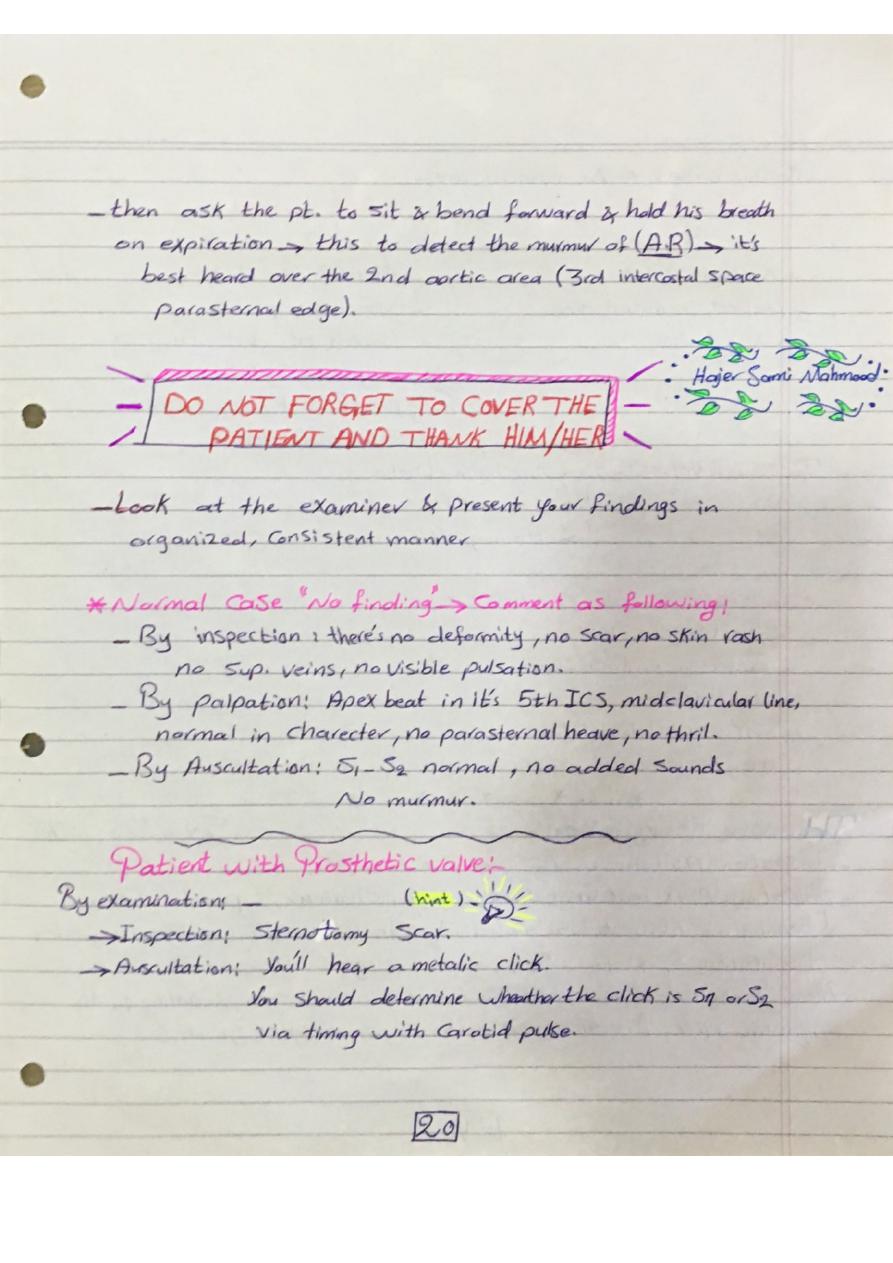 - then ask the pt. to sit & bend forward & hold his breath
on expiration → this to detect the murmur of (A.R) → it's
best heard over the 2nd aortic area (3rd intercostal space
parasternal edge).
Hajer Sami Mahmood
DO NOT FORGET TO COVER THE
PATIENT AND THANK HIM/HER
- Look at the examiner & present your findings in
organized, Consistent manner
* Normal Case "No finding" → Comment as following:
- By inspection : there's no deformity, no scar, no skin rash
no sup. veins, no visible pulsation.
- By palpation: Apex beat in it's 5th ICS, midclavicular line,
normal in charecter, no parasternal heave, no thril.
- By Auscultation: S1-S2 normal, no added sounds
No murmur.
Patient with Prosthetic valve:-
By examination: - (hint)
→ Inspection: Sternotomy Scar.
→ Auscultation: You'll hear a metalic click.
You should determine wheather the click is S1 or S2
via timing with Carotid pulse.
20